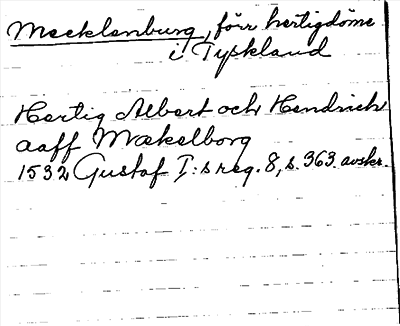 Mecklenburg, förr hertigdöme
i Tyskland
Hertig Albert och Hendrich
aaff Mækelborg
1532 Gustaf I:s reg. 8, s. 363 avskr.